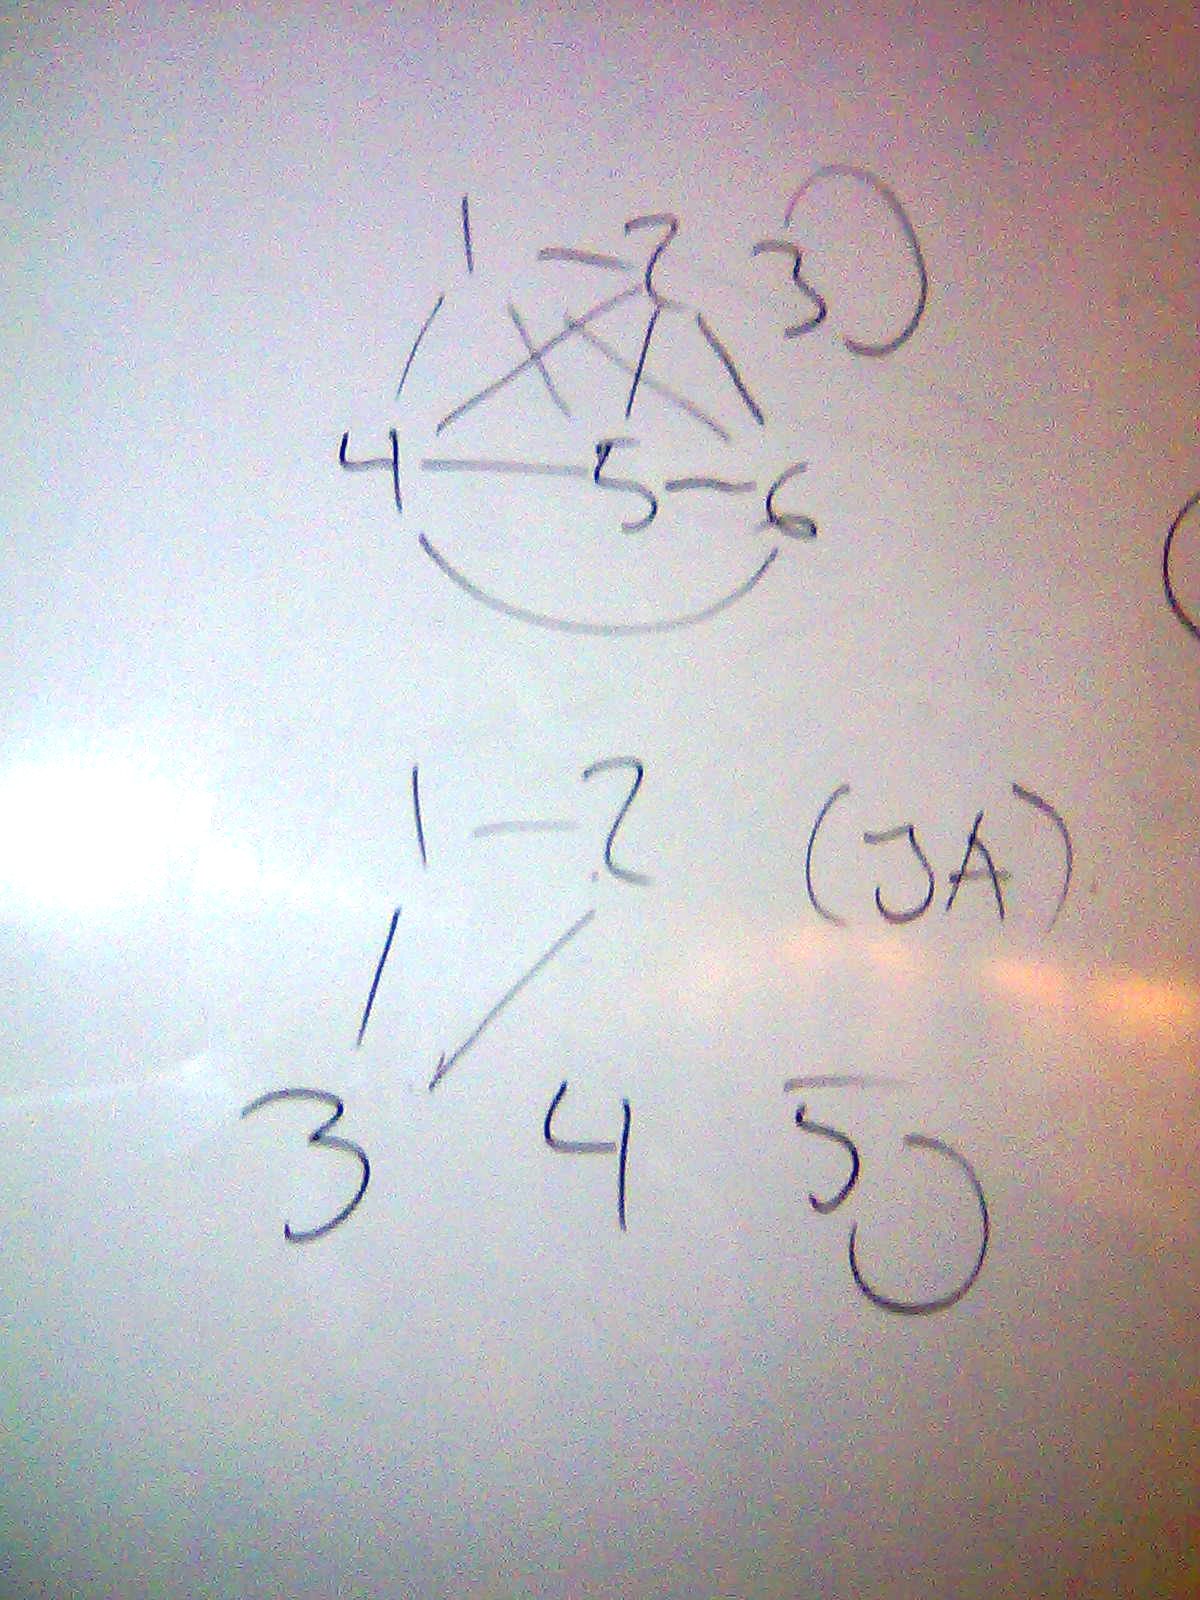 1 2 3
4 5 6
1 2 (JA)
3 4 5